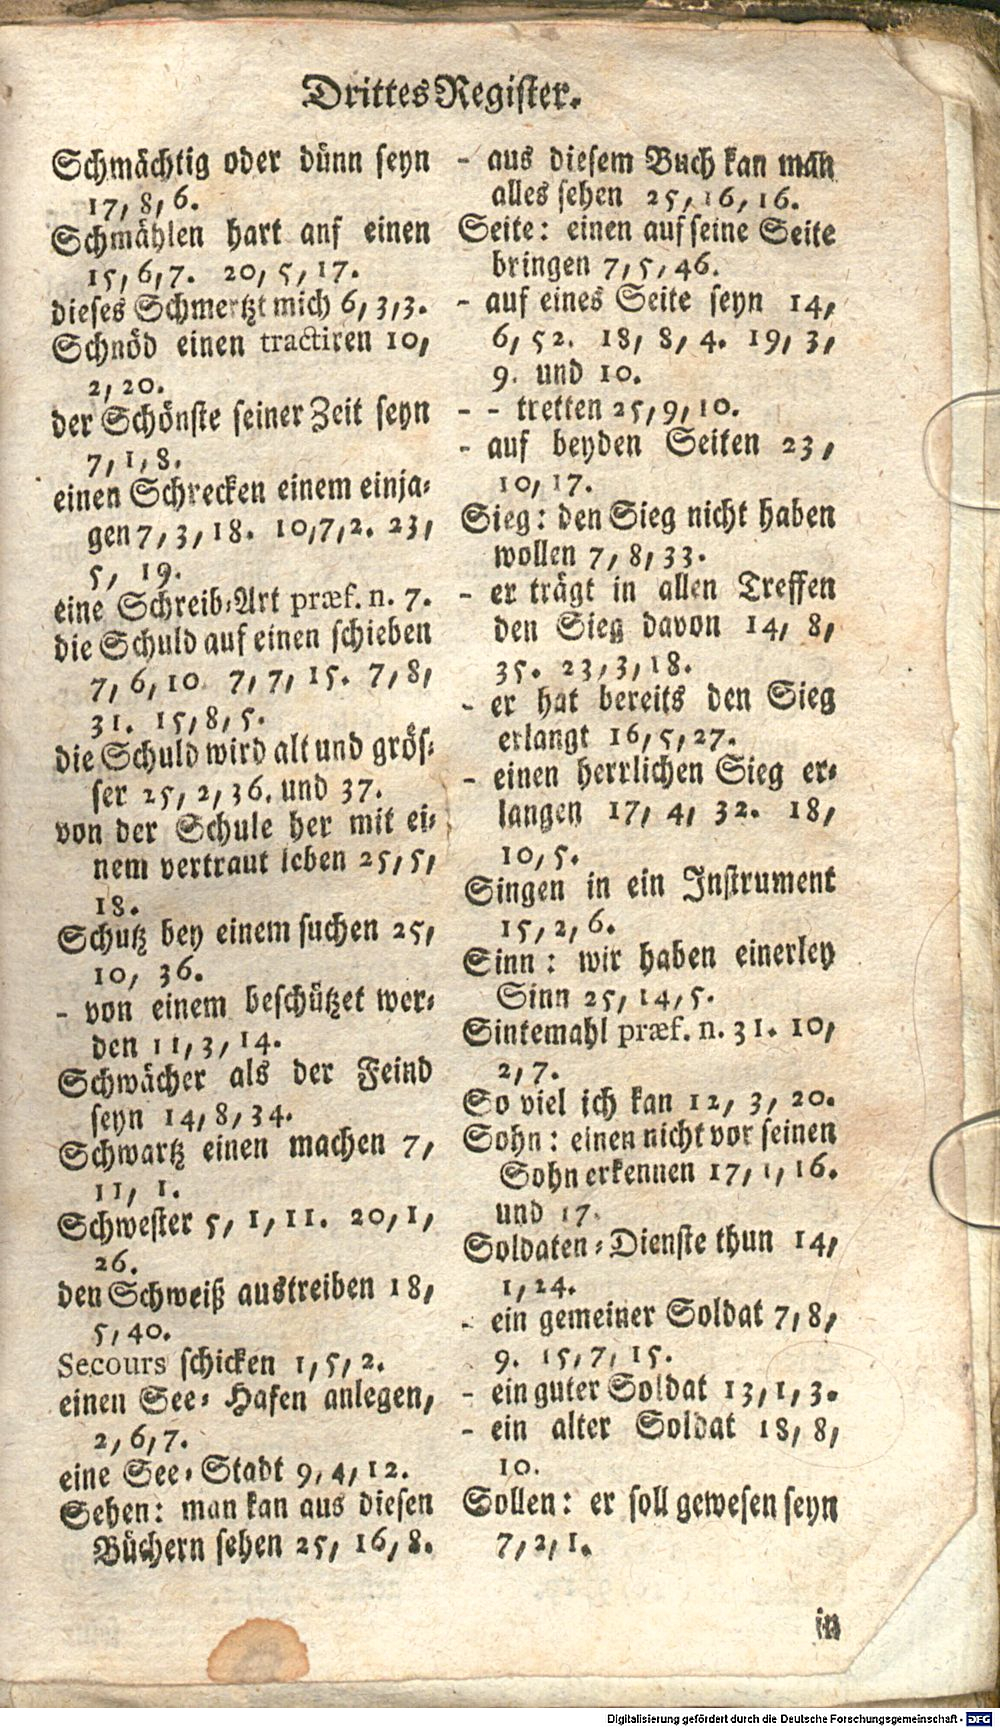 Drittes Register.
Schmächtig oder dünn seyn
17, 8, 6.
Schmählen hart anf einen
15, 6, 7. 20, 5, 17.
dieses Schmertzt mich 6, 3, 3.
Schnöd einen tractiren 10,
2, 20.
der Schönste seiner Zeit seyn
7, 1, 8.
einen Schrecken einem einja-
gen 7, 3, 18. 10, 7, 2. 23,
5, 19.
eine Schreib-Art præf. n. 7.
die Schuld auf einen schieben
7, 6, 10 7, 7, 15. 7, 8,
31. 15, 8, 5.
die Schuld wird alt und grös-
ser 25, 2, 36. und 37.
von der Schule her mit ei-
nem vertraut leben 25, 5,
18.
Schutz bey einem suchen 25,
10, 36.
- von einem beschützet wer-
den 11, 3, 14.
Schwächer als der Feind
seyn 14, 8, 34.
Schwartz einen machen 7,
11, 1.
Schwester 5, 1, 11. 20, 1,
26.
den Schweiß austreiben 18,
5, 40.
Secours schicken 1, 5, 2.
einen See-Hafen anlegen,
2, 6, 7.
eine See-Stadt 9, 4, 12.
Sehen: man kan aus diesen
Büchern sehen 25, 16, 8.
- aus diesem Buch kan man
alles sehen 25, 16, 16.
Seite: einen auf seine Seite
bringen 7, 5, 46.
- auf eines Seite seyn 14,
6, 52. 18, 8, 4. 19, 3,
9. und 10.
- - tretten 25, 9, 10.
- auf beyden Seiten 23,
10, 17.
Sieg: den Sieg nicht haben
wollen 7, 8, 33.
- er trägt in allen Treffen
den Sieg davon 14, 8,
35. 23, 3, 18.
- er hat bereits den Sieg
erlangt 16, 5, 27.
- einen herrlichen Sieg er-
langen 17, 4, 32. 18,
10, 5.
Singen in ein Instrument
15, 2, 6.
Sinn: wir haben einerley
Sinn 25, 14, 5.
Sintemahl præf. n. 31. 10,
2, 7.
So viel ich kan 12, 3, 20.
Sohn: einen nicht vor seinen
Sohn erkennen 17, 1, 16.
und 17.
Soldaten-Dienste thun 14,
1, 24.
- ein gemeiner Soldat 7, 8,
9. 15, 7, 15.
- ein guter Soldat 13, 1, 3.
- ein alter Soldat 18, 8,
10.
Sollen: er soll gewesen seyn
7, 2, 1.
in
Digitalisierung gefördert durch die Deutsche Forschungsgemeinschaft - DFG